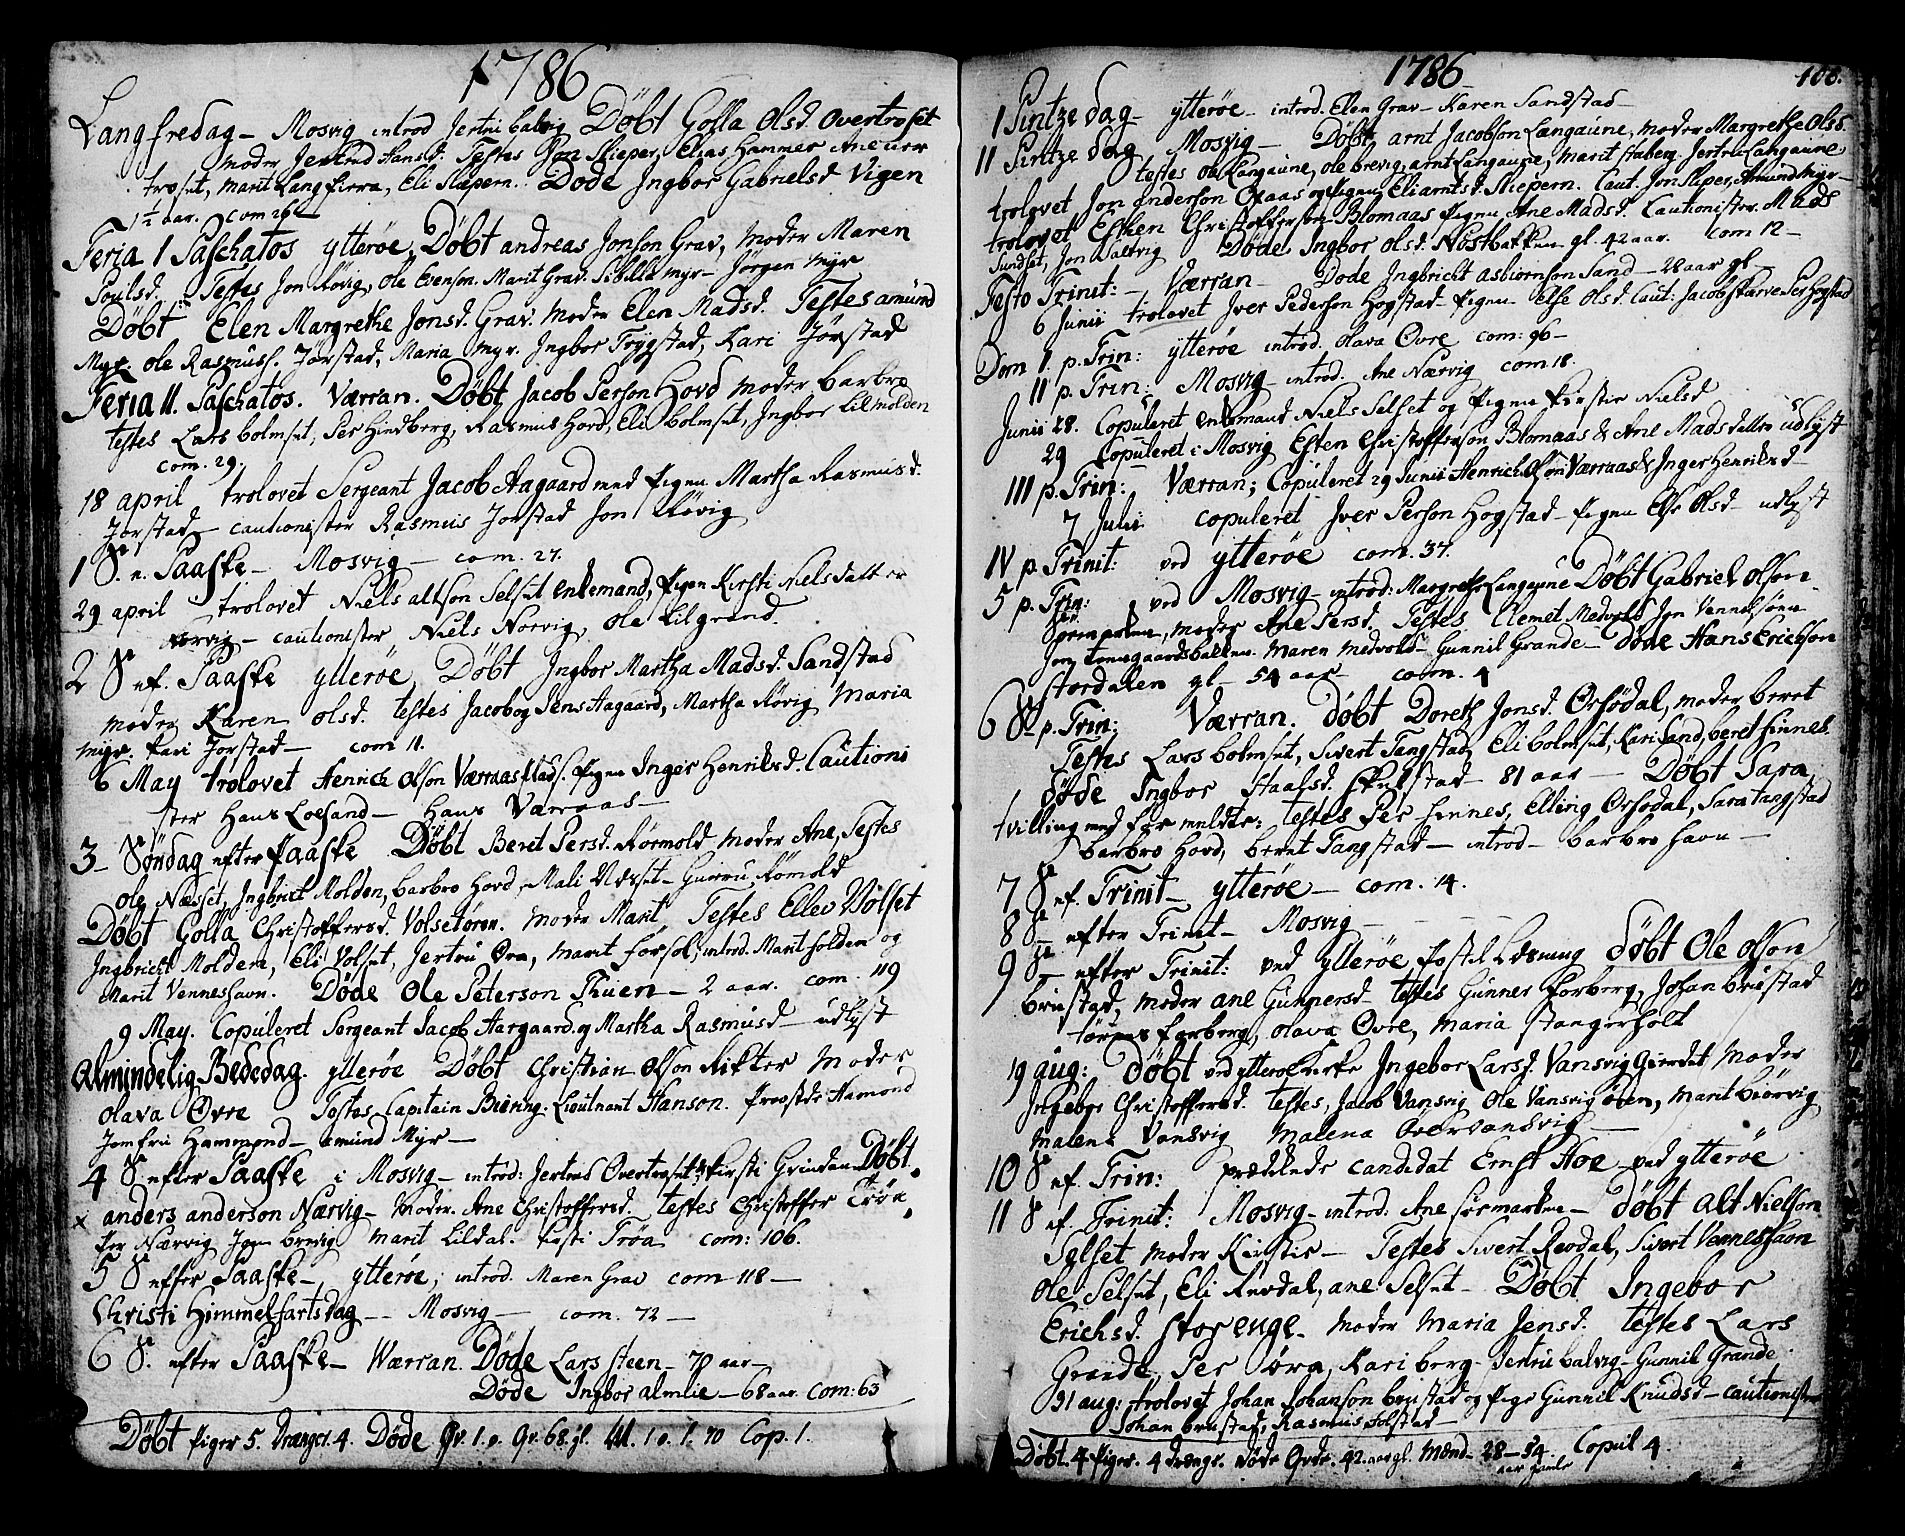 1786
Langfredag - Mosvig introd Jertru balvig Døbt Golla Olsd. Overtroset
moder Jertrud Hansd. Testes Jon Skieper, Elias Hammer Ane
troset, Marit Langfierra, Eli Skepern. Døde Ingbor Gabrielsd Vigen
1½ aar. com 26
Feria 1 Paschatos ytterøe Døbt andreas Jonson Grav, moder Maren
Poulsd. Testes Jon Røvig, Ole Evenson. Marit Grav. Sibilla myr - Jørgen Myr
Døbt Elen Margrethe Jonsd. Grav. moder Elen Madsd. Testes amund
Myr. ole Rasmuss. Jørstad, Maria myr. Ingbor Trygstad, Kari Jørstad
Feria 11. Paschatos. Værran. Døbt Jacob Person Hovd moder barbro
testes Lars bolmset, Per Hindberg, Rasmus Hovd, Eli bolmset, Ingbor Lilmolden
com. 29.
18 april trolovet Sergeant Jacob Aagaard med pigen Martha Rasmusd.
Jørstad - cautionister Rasmus Jorstad Jon Røvig
1 S. e. Paaske - Mosvig - com. 27.
29 april trolovet Niels altson Selset enkemand, Pigen Kirsti Nielsdatter
Norvig - cautionister Niels Norvig, Ole Lilgrand.
2 S. ef. Paaske ytterøe, Døbt Ingbor Martha Madsd. Sandstad
moder Karen olsd. testes Jacob og Jens Aagaard, Martha Røvig Maria
myr. Kari Jorstad - com 11.
6 May trolovet Henrich Olson Værraas Pigen Inger Henriksd. Cautioni
ster Hans Loesand - Hans Værraas -
3 - Søndag efter Paaske Døbt Beret Persd. Rørmold Moder Ane, Testes
Ole Næsset, Ingbrict Molden, barbro Hovd, Mali Næset - Guru Rømold
Døbt Golla Christoffersd. Volsetøren. moder Marit Testes Ellev Völset
Ingbricht Molden, Eli Volset, Jertru Øra, marit Forsol, introd. Marit folden og
Marit Venneshavn. Døde Ole Peterson Thuen - 2 aar. com. 119
9 May. Copuleret Sergeant Jacob Aargaard og Martha Rasmusd - udlyst
Almindelig Bededag. ytterøe Døbt Christian Olson Rikter Moder
olava Øvre Testes Capitain Biering. Lieutnant Hanson. Provstde Hamond
Jomfru Hammond - amund Myr -
4 S. efter Paaske i Mosvig - introd: Jertrud Overtroset, & Kirsti Grindan Døbt
x anders anderson Nærvig - Moder. Ane Christoffersd. testes Christoffer Trøn
Per Nærvig Jon brevig Marit Lildal. Kirsti Trøa com: 106.
5 S efter Paaske -, ytterøe, introd. Maren Grav com 118 -
Christi Himmelfartsdag -- Mosvig - com. 72 -
6 S. efter Paaske - Wærran. Døde Lars steen - 70 aar -
Døde Ingbor almlie - 68 aar. com: 63
Døbt piger 5. Drenger. 4. Døde Qv. 1. o. Qv. 68. gl. M. 1 o. 1. 70 Cop. 1.
1786
100.
1 Pintze dag - ytterøe - introd. Elen Grav - Karen Sandstad -
11 Pintze dag Mosvig - Døbt arnt Jacobson Langaune, moder Margrethe Olsd.
testes ole Langaune, ole brevig, arnt Langaune, Marit staberg, Jertru Langaune
trolovet Jon Anderson Opaas og Pigen Eli arntsd. Skiepern. Caut. Jon Skiper, Amund Myr -
trolovet Esten Christofferson Blomaas Pigen Ane Madsd. Cautionister Mads
Sundset, Jon Saltvig Døde Ingbor olsd. Nostbakken gl. 42 aar. com 12 -
Festo Trinit: - Værran - Døde Ingbricht asbiørnson Sand - 28 aar gl -
6 Junii trolovet Iver Pederson Hogstad Pigen Else Olsd. Caut: Jacob Skierve Per Hogstad
Dom 1. p. Trin: ytterøe introd. olava Øvre com: 96 -
11 p. Trin: Mosvig - introd. Ane Nærvig com 18.
Junii 28. Copuleret enkemand Niels Selset og Pigen Kirstie Nielsd
29 Copuleret i Mosvig Esten Christofferson Blomaas & Ane Madsdatter udlyst
111 p. Trin: Værran; Copuleret 29 Junii Henrich Olson Værraas & Inger Henriksd -
7 Julii copuleret Iver Person Hogstad - Pigen Else Olsd - udlyst
IV p. Trinit: ved ytterøe com. 37.
5 p. Trin: ved Mosvig - introd: Margrethe Langaune Døbt Gabriel olson
Sørmarken, moder Ane Persd. Testes Clemet Medvold Jon Vennesønn
Jon tomegaardsbakken. Maren Medvold - Gunnil Grande - Døde Hans Erichson
stordalen gl - 54 aar com. 4
6 S. p. Trin: Værran. Døbt Doreth Jonsd. Orsødal, moder beret
Testes Lars bolmset, Sivert Tangstad, Eli bolmset, Kari Sand, beret hinnes
Døde Ingbor Staalsd. Skielstad - 81 aar - Døbt Sara,
tvilling med før meldte: testes Per hinnes, Elling Orsødal, Sara tangstad
barbro Hovd, beret Tangstad - introd - barbro havn -
7 S. ef. Trinit - ytterøe - com. 14.
8 S. efter Trinit - Mosvig -
9 S. - efter Trinit: ved ytterøe Postil Læsning Døbt Ole Olson
Brustad, moder ane Gunnersd - testes Gunner Forberg, Johan Brustad
Forberg, olava Øvre, Maria Stangerholt
19 aug: Døbt ved ytterøe Kirke Ingebor Larsd. Vansvig Gierdet Moder
Ingebor Christoffersd. testes, Jacob Vansvig Ole Vansvigøien, marit biørvig
malena Vansvig Malena Overvansvig -
10 S. ef. Trin: prædikede candidat Ernst Hoe - ved ytterøe
11 S. ef. Trinit: Mosvig - introd. Ane sørmarken - Døbt Alt Nielson
Selset moder Kirstie - Testes Sivert Revdal, Sivert Venneshavn
ole Selset, Eli Revdal, ane Selset - Døbt Ingebor
Erichsd. Storenge - moder maria Jensd. testes Lars
Grande, Per Øra, Kari berg - Jertru balvig - Gunnil Grande
31 aug: trolovet Johan Johanson brustad og Pige Gunnil Knudsd - cautionister
Johan brustad, Rasmus Folstad -
Døbt. 4. Piger. 4 drenge. Døde Qvde. 42. aar gl. Mænd. 28 - 54. Copul 4.
aar gamle